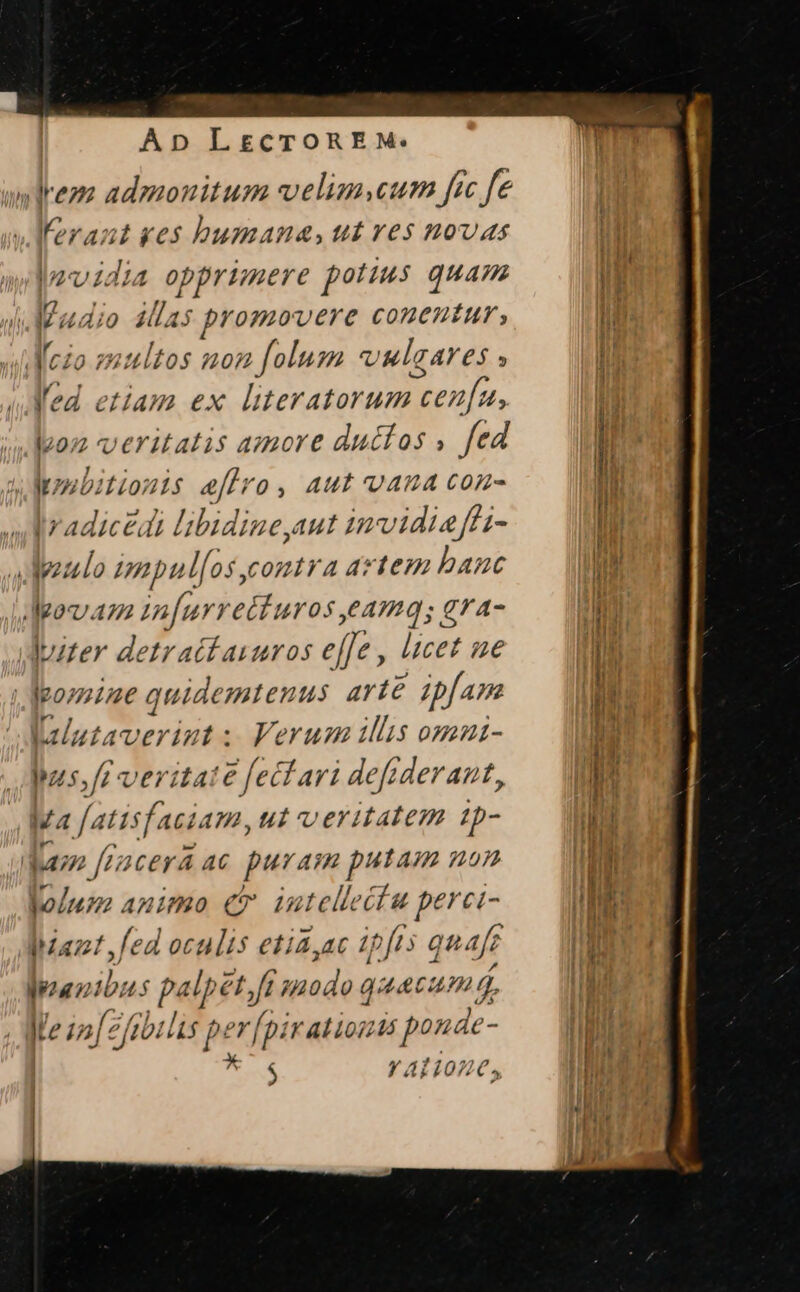 AD LECTOREM.
rem admonitum velim, cum ſic ſe
ferant res humanæ, ut res novas
invidia opprimere potius quam
ſtudio illas promovere conentur,
ſcio multos non ſolum vulgares,
ſed etiam ex literatorum cenſu,
non veritatis amore ductos, ſed
ambitionis œſtro, aut vana con-
tradicēdi libidine, aut invidiæ ſti-
mulo impulſos, contra artem hanc
novam inſurrecturos, eamq; gra-
viter detractaturos eſſe, licet ne
nomine quidem tenus artē ipſam
ſalutaverint: Verum illis omni-
bus, ſi veritatē ſectari deſiderant,
ita ſatisfaciam, ut veritatem ip-
ſam ſincerā ac puram putam non
ſolum animo & intellectu perci-
piant, ſed oculis etiā, ac ipſis quaſi
manibus palpēt, ſi modo quacumq,
Me inſēſibilis perſpirationis ponde-
* 5 ratione,